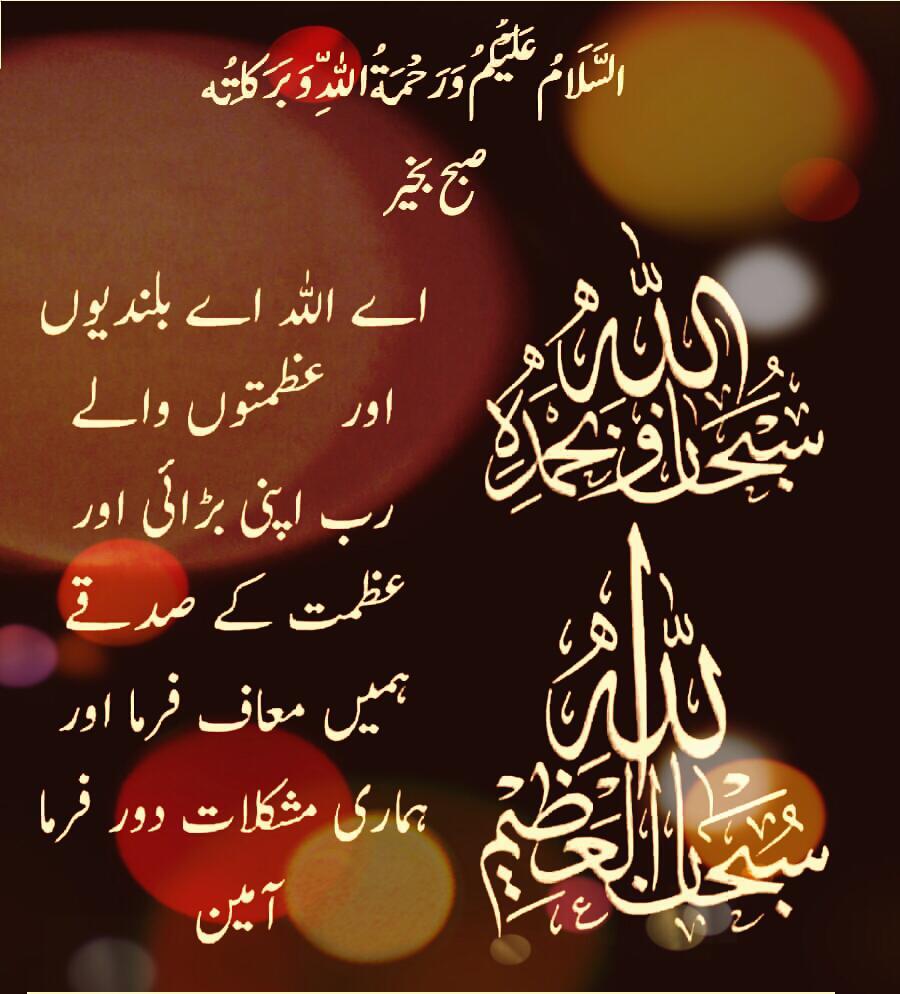 السَّلَامُ عَلَيْكُمُ وَرَحْمَةُ اللّٰهِ وَبَرَكَاتُه
صبح بخیر
اے اللہ اے بلندیوں
اور عظمتوں والے
رب اپنی بڑائی اور
عظمت کے صدقے
ہمیں معاف فرما اور
ہماری مشکلات دور فرما
آمین
سُبْحَانَ اللّٰهِ وَبِحَمْدِهِ
سُبْحَانَ اللّٰهِ الْعَظِيْمِ